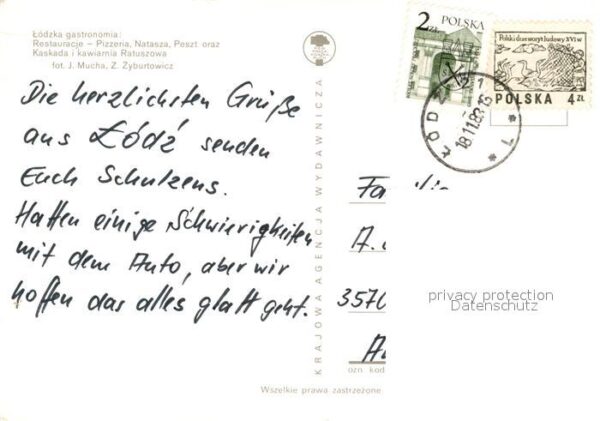 Łódzka gastronomia:
Restauracje – Pizzeria, Natasza, Peszt oraz
Kaskada i kawiarnia Ratuszowa
fot. J. Mucha, Z. Zyburtowicz
Die herzlichsten Grüße
aus Łódź senden
Euch Schulzens.
Hatten einige Schwierigkeiten
mit dem Auto, aber wir
hoffen das alles glatt geht.
KRAJOWA AGENCJA WYDAWNICZA
2 ZŁ POLSKA
Polski drzeworyt ludowy XVI w
POLSKA 4 ZŁ
ŁÓDŹ 1
18.11.83.13
Familie
A.
3570
privacy protection
Datenschutz
ozn kod
Wszelkie prawa zastrzeżone